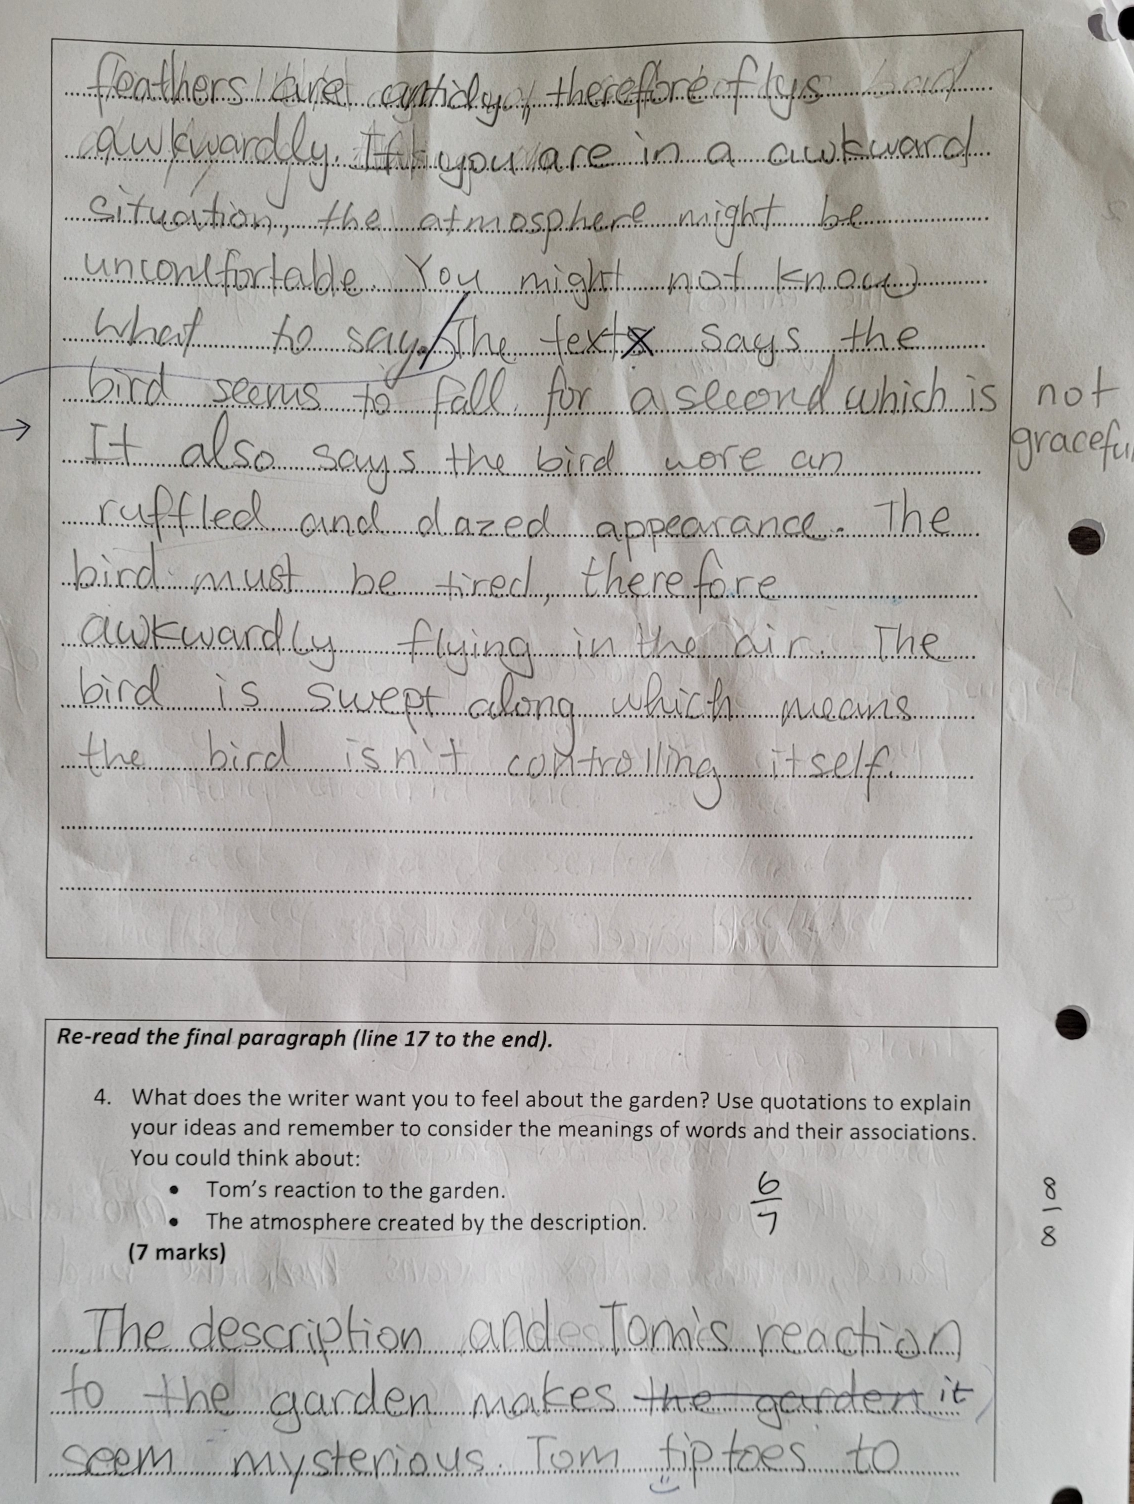 feathers are untidy, therefore flys
awkwardly. If you are in a awkward
situation, the atmosphere might be
uncomfortable. You might not know
what to say. The text says the
bird seems to fall for a second which is not
graceful
It also says the bird wore an
ruffled and dazed appearance. The
bird must be tired, therefore
awkwardly flying in the air. The
bird is swept along which means
the bird isn't controlling itself.
Re-read the final paragraph (line 17 to the end).
4. What does the writer want you to feel about the garden? Use quotations to explain
your ideas and remember to consider the meanings of words and their associations.
You could think about:
• Tom's reaction to the garden.
• The atmosphere created by the description.
(7 marks)
6/7
8/8
The description and Tom's reaction
to the garden makes the garden it
seem mysterious. Tom tiptoes to